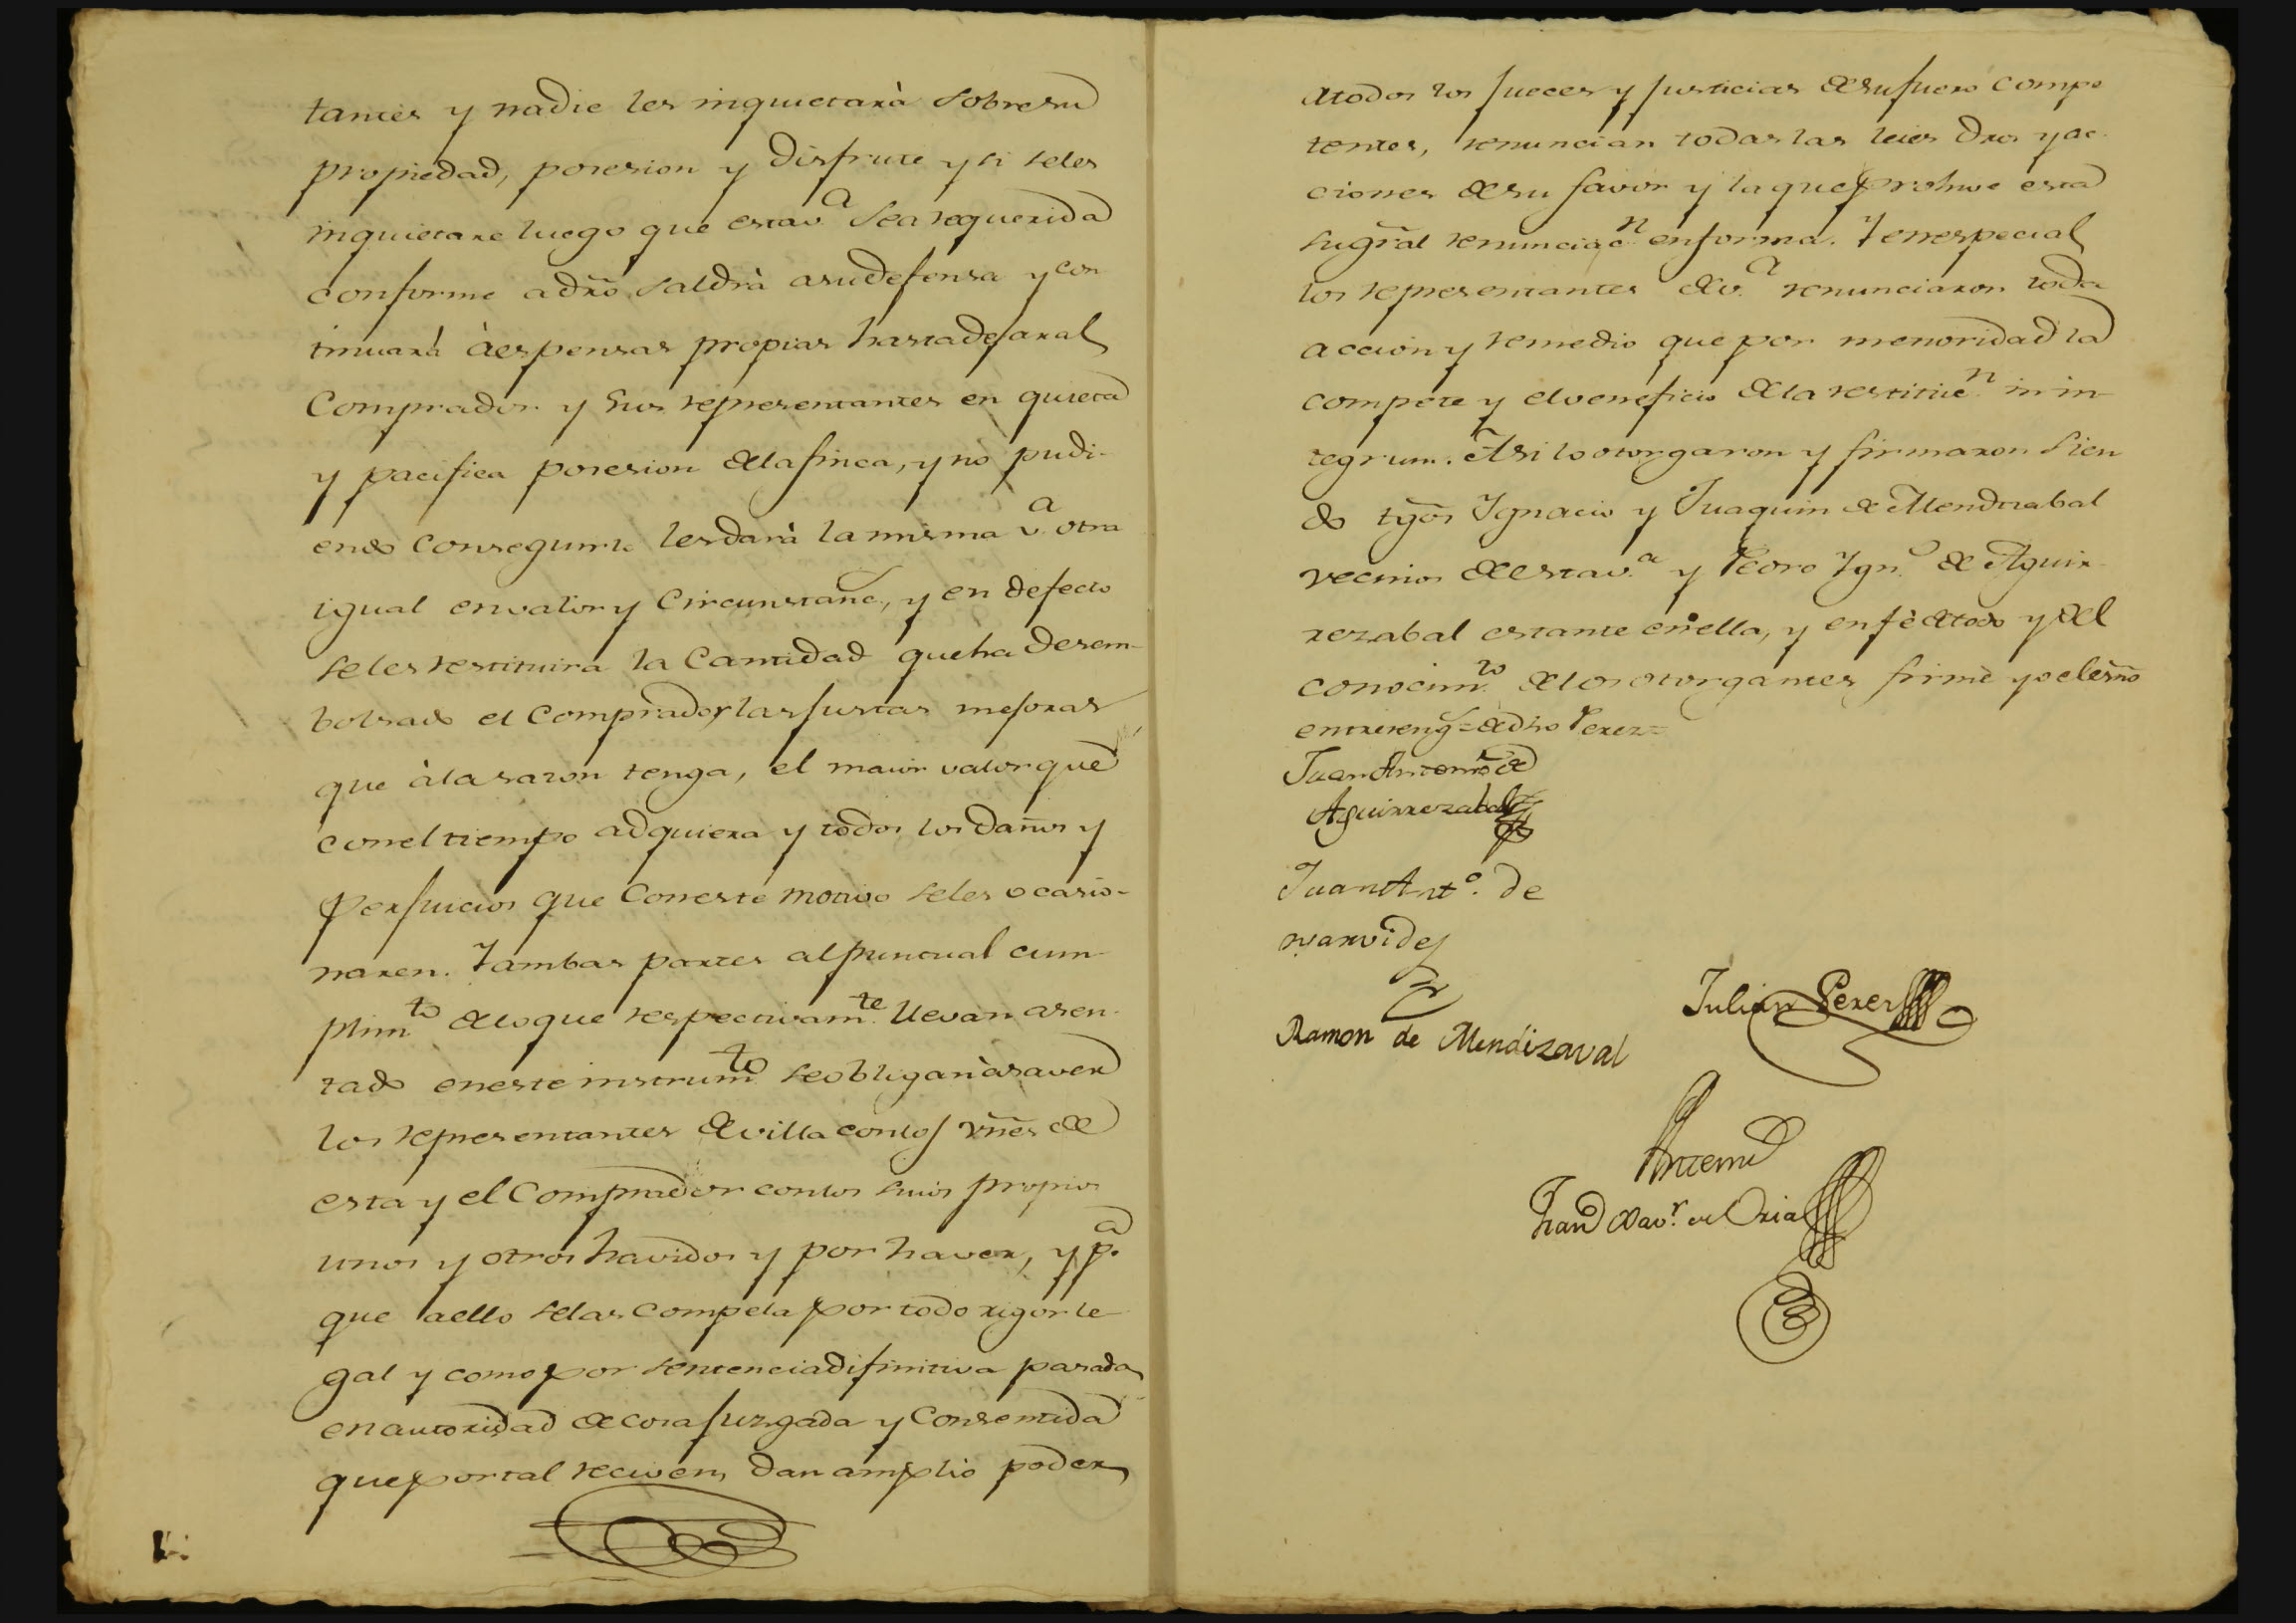 tantes y nadie les inquietarà sobre su
propiedad, posesion y disfrute y si se les
inquietare luego que esta v.ª sea requerida
conforme a dr̃o saldrà a su defensa y con
tinuará à espensas propias hasta dejar al
Comprador y sus representantes en quieta
y pacifica posesion de la finca, y no pudi-
endo conseguirlo les darà la misma v.ª otra
igual en valor y circunstanc.s, y en defecto
se les restituira la Cantidad que ha desem-
bolsado el Comprador, las justas mejoras
que à la sazon tenga, el maior valor que
con el tiempo adquiera y todos los daños y
perjuicios que con este motivo se les ocasio-
naren. Y ambas partes al puntual cum-
plim.to de lo que respectivam.te llevan asen-
tado en este instrum.to se obligan à saver
los representantes de villa con los vñes de
esta y el Comprador con los suios propios
unos y otros havidos y por haver, y p.ª
que a ello se las compela por todo rigor le
gal y como por sentencia difinitiva pasada
en autoridad de cosa juzgada y Consentida
que por tal reciven, dan amplio poder
a todos los Jueces y Justicias de su fuero compe
tentes, renuncian todas las leies dr̃os y ac-
ciones de su favor y la que prohive esta
su gr̃al renunciac.n en forma. Y en especial
los representantes de v.ª renunciaron toda
accion y remedio que por menoridad la
compete y el veneficio de la restituc.n in in-
tegrum. Asi lo otorgaron y firmaron sien
do tg̃os Ygnacio y Juaquin de Mendizabal
vecinos de esta v.ª y Pedro Ygn.o de Aguir-
rezabal estante en ella, y en fè de todo y del
conocim.to de los otorgantes firmè yo el esñ̃o
entrereng.s = de dho Perez =
Juan Antonio de
Aguirrezabal
Juan Ant.o de
narvides
Ramon de Mendizaval
Julian Perez
Antemi
Fran.co Xav.r de Oria